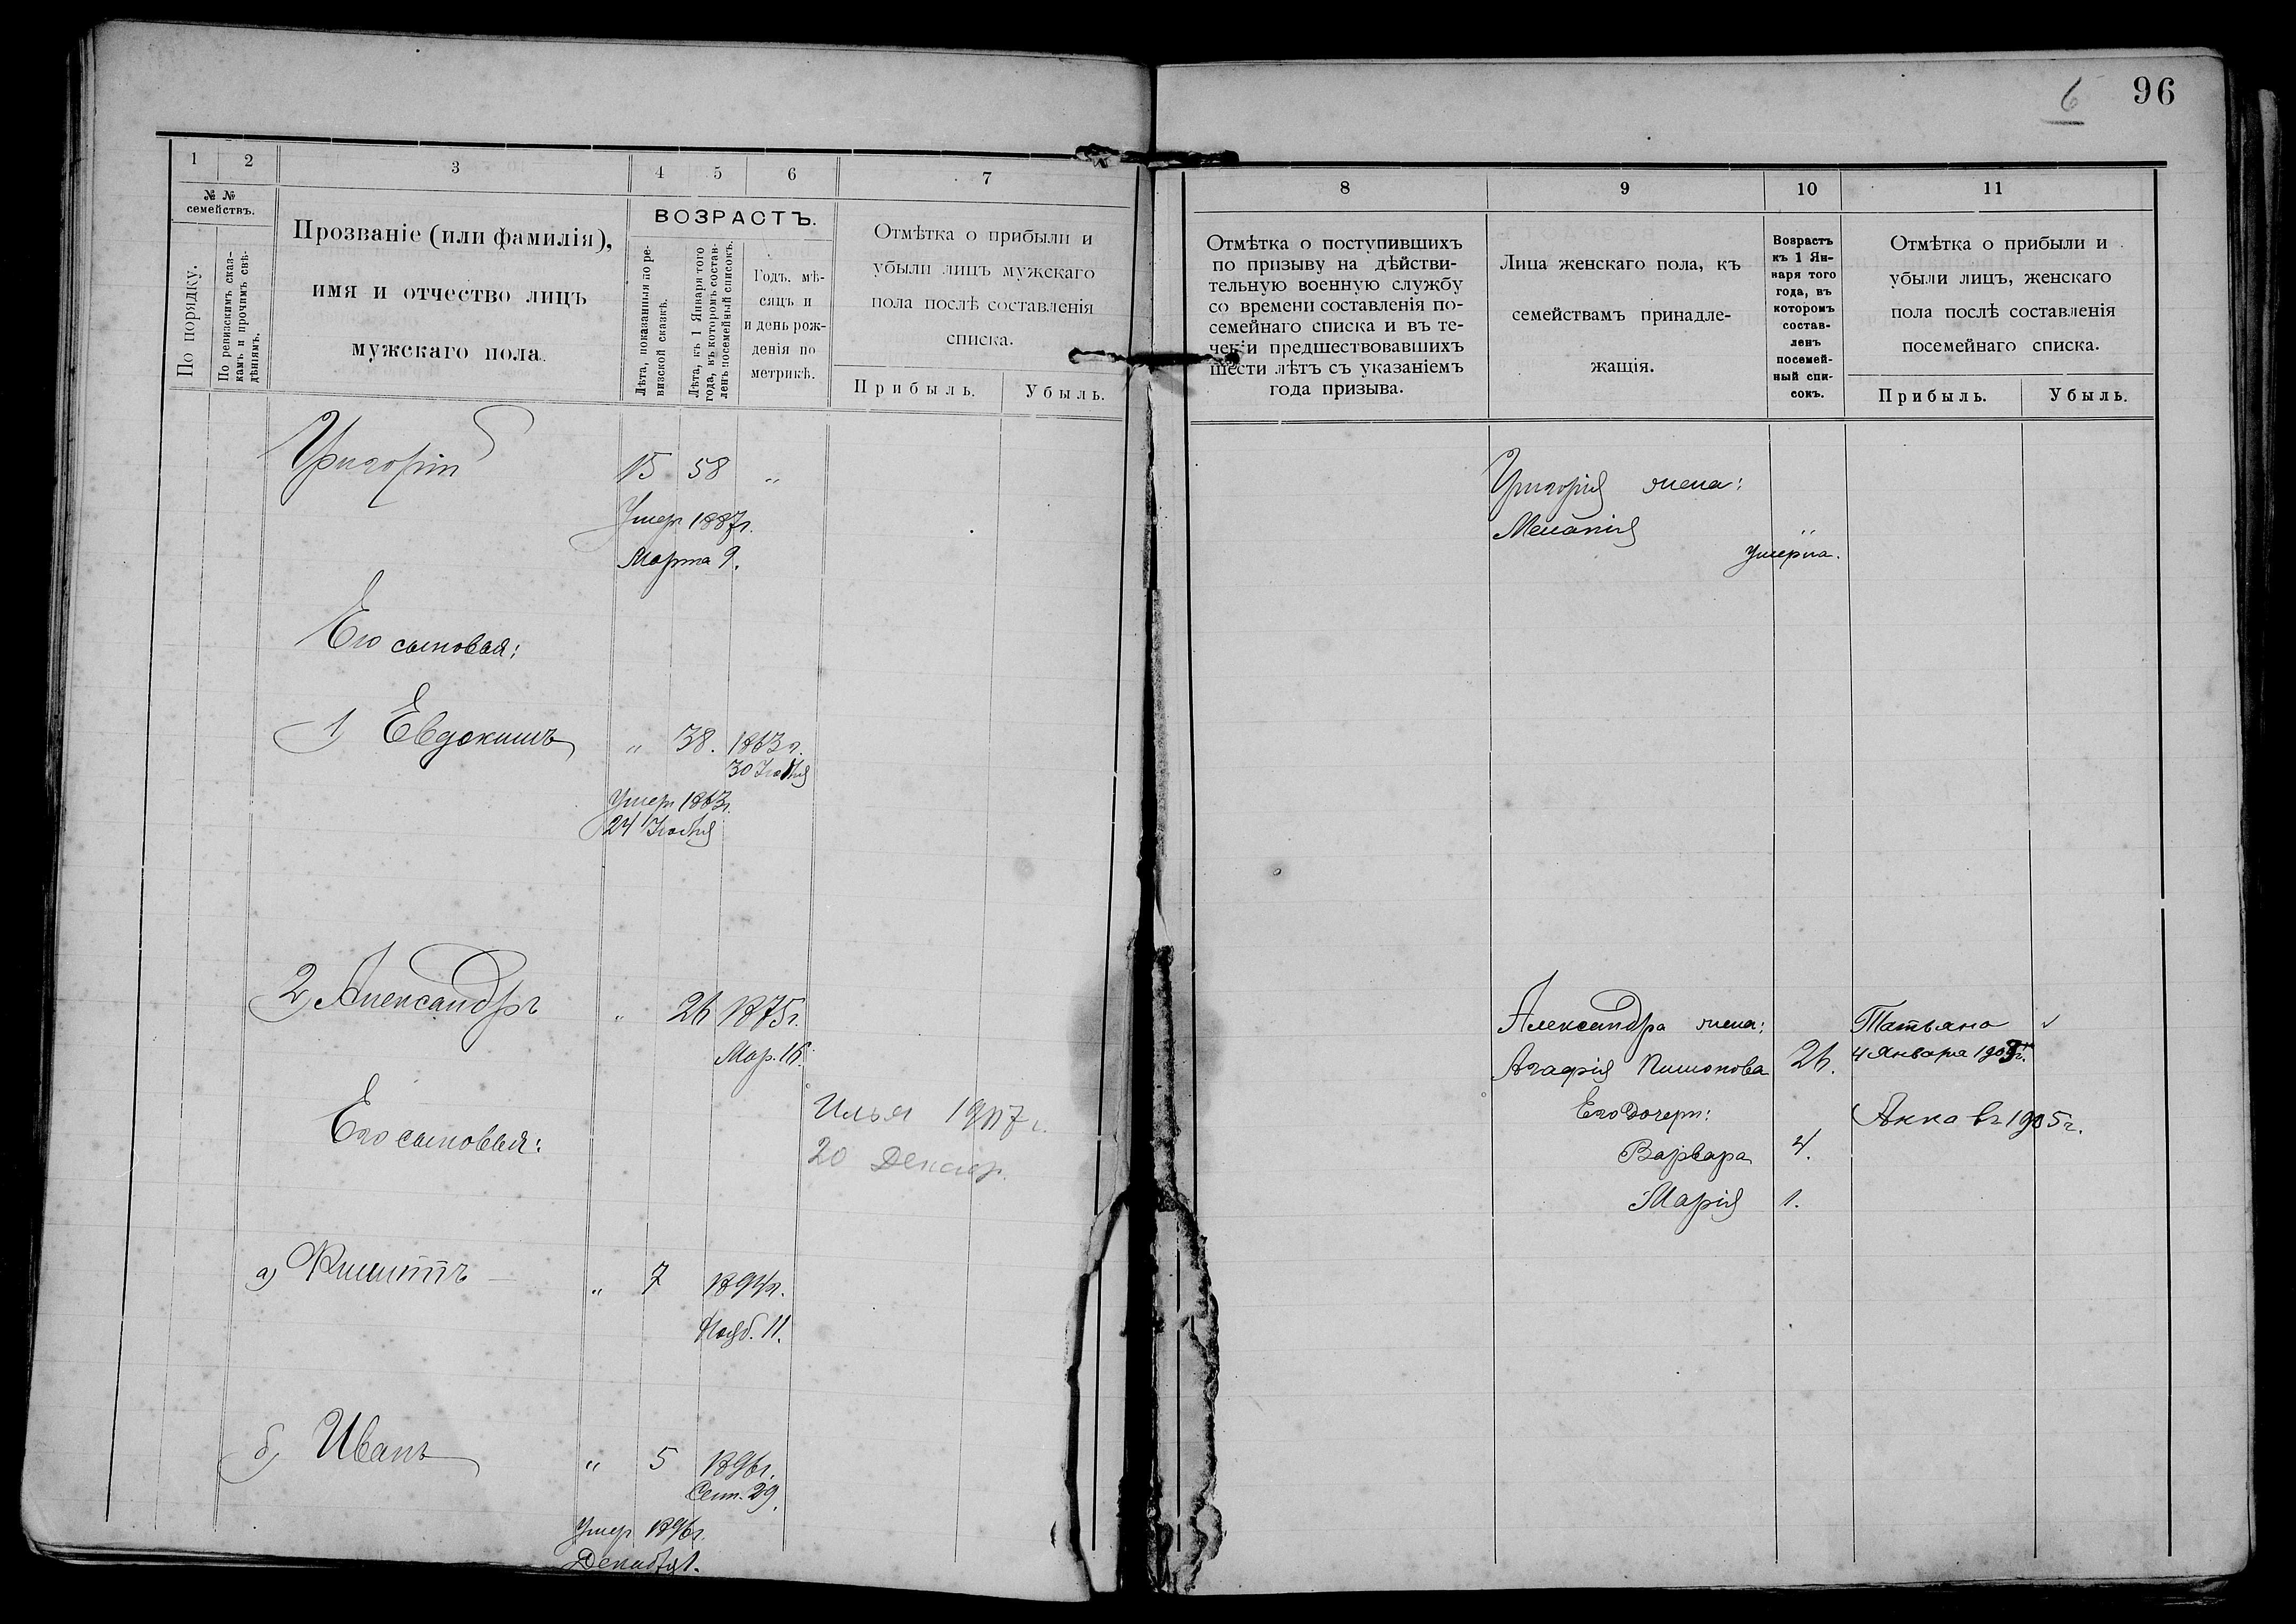 6 96
1 2 3 4 5 6 7
№ №
семействъ.
По порядку.
По ревизскимъ сказ-
камъ и прочимъ свѣ-
дѣніямъ.
Прозваніе (или фамилія),
имя и отчество лицъ
мужскаго пола.
ВОЗРАСТЪ.
Лѣта, показанныя по ре-
визской сказкѣ.
Лѣта, къ 1 Января того
года, въ которомъ состав-
ленъ посемейный списокъ.
Годъ, мѣ-
сяцъ и
и день рож-
денія по
метрикѣ.
Отмѣтка о прибыли и
убыли лицъ мужскаго
пола послѣ составленія
списка.
Прибыль. Убыль.
Григорій 15 58 „
Умер 1887г.
Марта 9.
Его сыновья:
1) Евдокимъ „ 38. 1863г.
30
Умер 1863г.
24
2) Александръ „ 26 1875г.
Мар. 16.
Его сыновья:
Илья 1907г.
20 Декабр.
а) Филиппъ „ 7 1894г.
Нояб. 11.
б) Иванъ „ 5 1896г.
Сент. 29.
Умер 1896г.
Декабря 1.
8 9 10 11
Отмѣтка о поступившихъ
по призыву на дѣйстви-
тельную военную службу
со времени составленія по-
семейнаго списка и въ те-
ченіи предшествовавшихъ
шести лѣтъ съ указаніемъ
года призыва.
Лица женскаго пола, къ
семействамъ принадле-
жащія.
Возрастъ
къ 1 Ян-
варя того
года, въ
которомъ
состав-
ленъ
посемей-
ный спи-
сокъ.
Отмѣтка о прибыли и
убыли лицъ, женскаго
пола послѣ составленія
посемейнаго списка.
Прибыль. Убыль.
Григорія жена:
Меланія „
умерла.
Александра жена: Татьяна
Агафія 26. 4 Января 1903г.
Его дочери: Анна въ 1905г.
Варвара 4.
Марія 1.